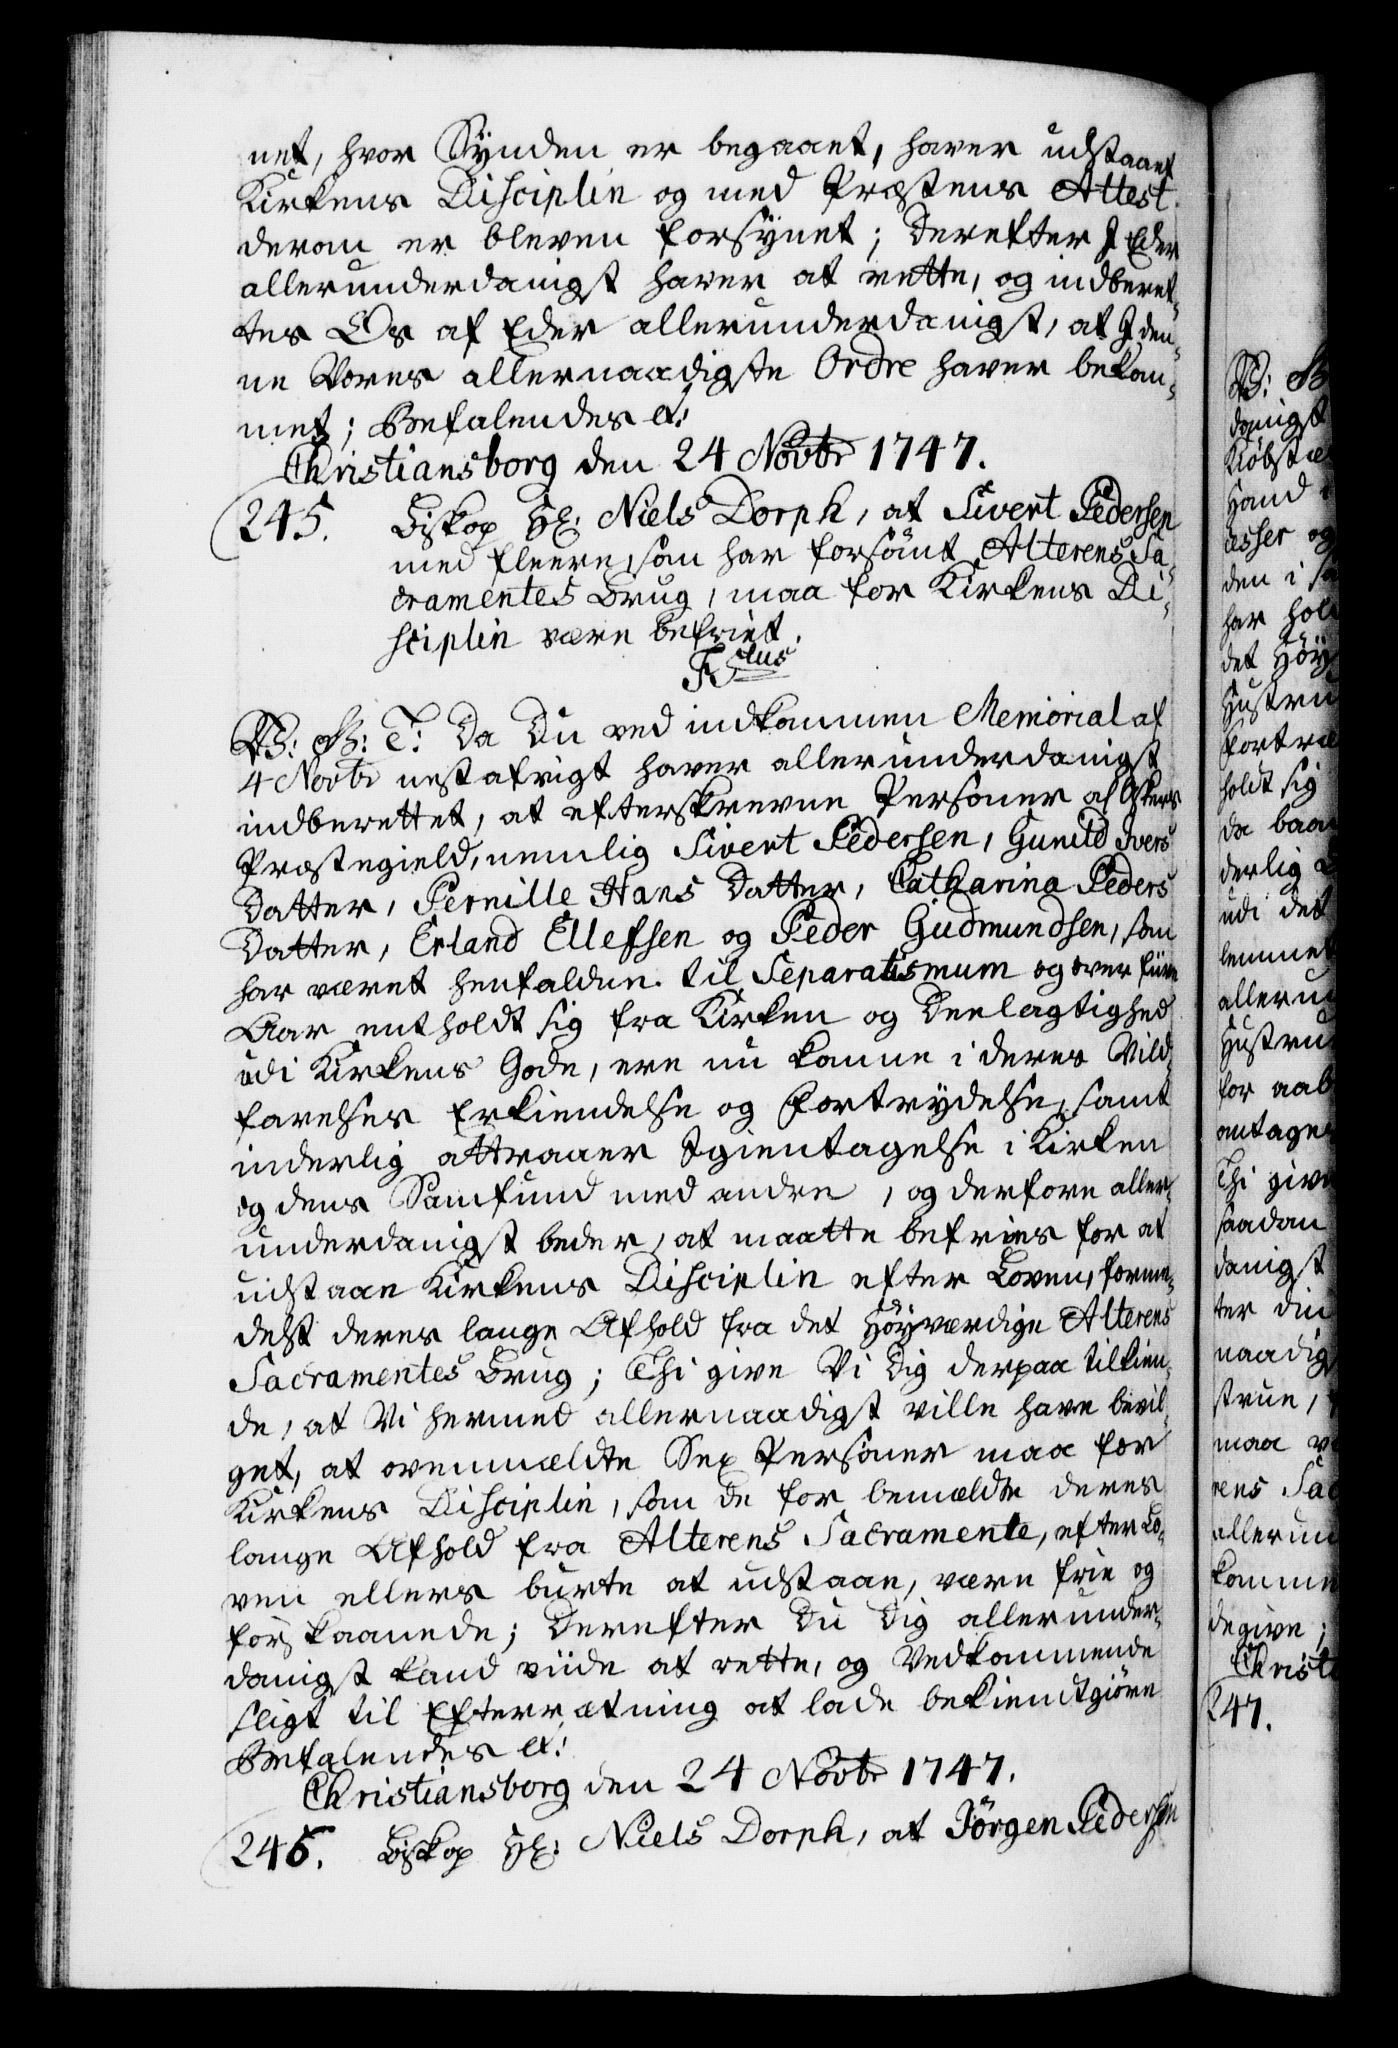 net, hvor Synden er begaaet, haver udstaaet
Kirkens Disciplin og med Præstens Attest
derom er bleven forsynet; Derefter I Eder
allerunderdanigst haver at rette, og indberet-
tes Os af Eder allerunderdanigst, at I den-
ne Vores allernaadigste Ordre haver bekom-
met; Befalendes etc:
Christiansborg den 24 Novbr 1747.
245. Biskop Hr: Niels Dorph, at Sivert Pedersen
med fleere, som har forsömt Alterens Sa-
cramentes Brug, maa for Kirkens Di-
sciplin være befriet.
F. 4tus
V: G: T: Da Du ved indkommen Memorial af
4 Novbr nestafvigt haver allerunderdanigst
indberettet, at efterskrevne Personer af Askers
Præstegield, nemlig Sivert Pedersen, Gunild Ivers
Datter, Pernille Hans Datter, Catharina Peders
Datter, Erland Ellefsen og Peder Gudmundsen, som
har været henfalden til Separatismum og over fiire
Aar entholdt sig fra Kirken og Deelagtighed
udi Kirkens Gode, ere nu komne i deres Vild-
farelses Erkiendelse og Fortrydelse, samt
inderlig attraaer Igientagelse i Kirken
og dens Samfund med andre, og derfore aller-
underdanigst beder, at maatte befries for at
udstaae Kirkens Disciplin efter Loven, forme-
delst deres lange Afhold fra det Höyværdige Alterens
Sacramentes Brug; Thi give Vi Dig derpaa tilkien-
de, at Vi hermed allernaadigst ville have bevil-
get, at ovenmældte Sex Personer maa for
Kirkens Disciplin, som de for bemældte deres
lange Afhold fra Alterens Sacramente, efter Lo-
ven ellers burte at udstaae, være frie og
forskaanede; Derefter Du Dig allerunder-
danigst kand viide at rette, og Vedkommende
sligt til Efterrætning at lade bekiendtgiöre
Befalendes etc:
Christiansborg den 24 Novbr 1747.
246. Biskop Hr: Niels Dorph, at Jörgen Pedersen